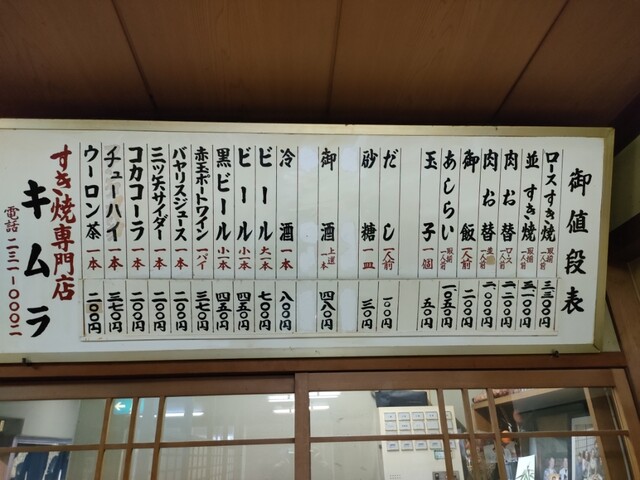 御値段表
ロースすき焼 一人前 三三〇〇円
並すき焼 一人前 三一〇〇円
肉お替 ロース 一人前 二二〇〇円
肉お替 並 一人前 二〇〇〇円
御飯 一人前 二〇〇円
あしらい 一人前 一〇五〇円
玉子 一個 五〇円
だし 一人前 一〇〇円
砂糖 一皿 三〇円
御酒 上選 一本 四八〇円
冷酒 一本 八〇〇円
ビール 大一本 七〇〇円
ビール 小一本 四五〇円
黒ビール 小一本 四五〇円
赤玉ポートワイン 一パイ 三五〇円
バヤリスジュース 一本 二〇〇円
三ツ矢サイダー 一本 二〇〇円
コカコーラ 一本 二〇〇円
チューハイ 一本 三五〇円
ウーロン茶 一本 二〇〇円
すき焼専門店
キムラ
電話 二三一-〇〇〇二